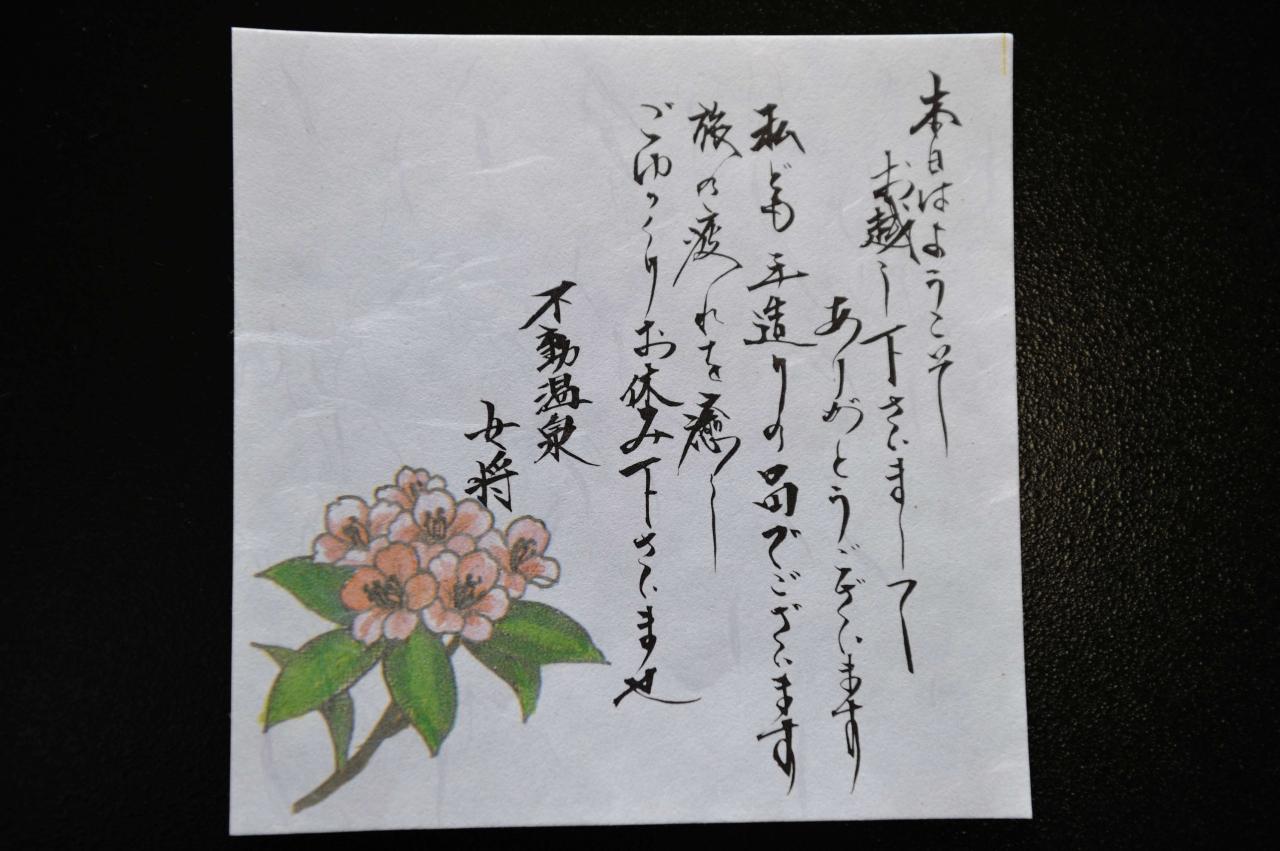 本日はようこそ
お越し下さいまして
ありがとうございます
私ども手造りの品でございます
旅の疲れを癒し
ごゆっくりお休み下さいませ
不動温泉
女将